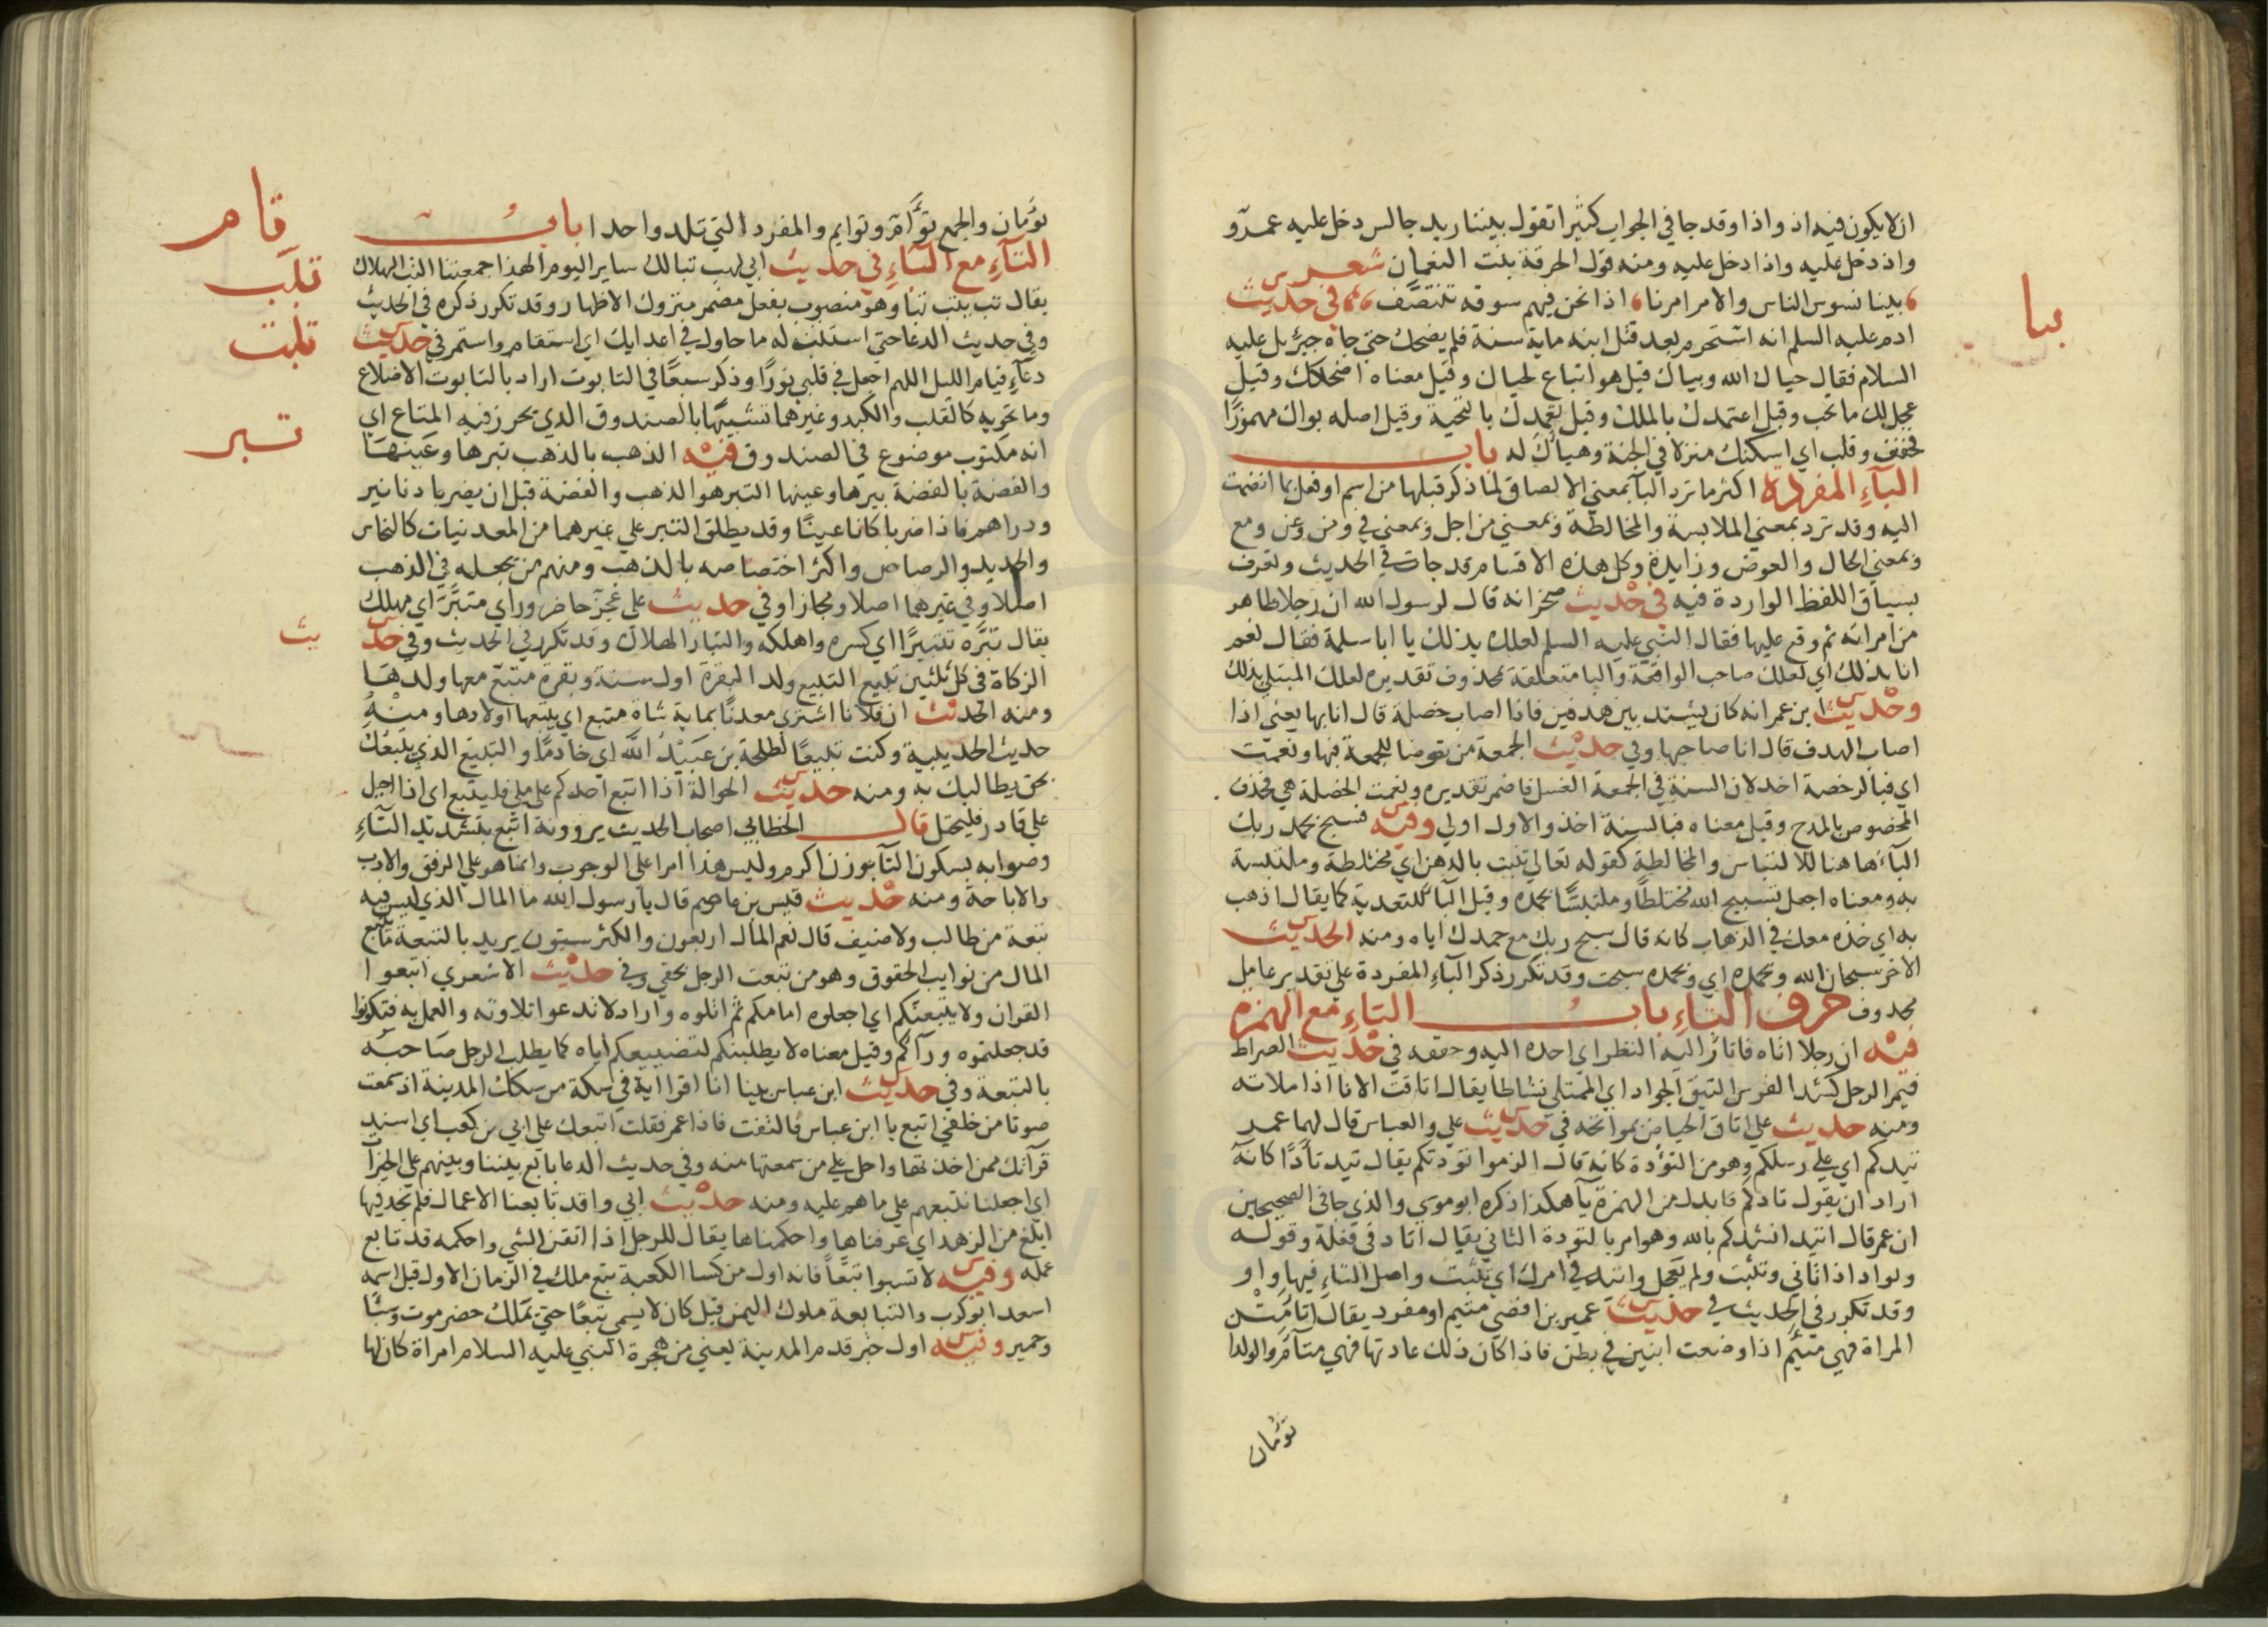 ان لا يكون فيه اذ واذا وقد جا في الجواب كثيرا تقول بيننا زيد جالس دخل عليه عمرو
واذ دخل عليه واذا دخل عليه ومنه قول الحرقة بنت النعمان شعر
بينا نسوس الناس والامر امرنا اذا نحن فيهم سوقه نتنصف في حديث
ادم عليه السلم انه استحرم بعد قتل ابنه ماية سنة فلم يضحك حتي جاه جبريل عليه
السلام فقال حياك الله وبياك قيل هو اتباع لحياك وقيل معناه اضحكك وقيل
عجل لك ما تحب وقيل اعتمدك بالملك وقيل تعمدك بالتحية وقيل اصله بواك مهموزا
فخفف وقلب اي اسكنك منزلا في الجنة وهياك له باب
الباء المفردة اكثر ما ترد البا بمعني الالصاق لما ذكر قبلها من اسم او فعل بما انضمت
اليه وقد ترد بمعني الملابسة والمخالطة وبمعني من اجل وبمعني في ومن وعن ومع
وبمعني الحال والعوض وزايدة وكل هذه الاقسام قد جات في الحديث وتعرف
بسياق اللفظ الواردة فيه في حديث صخر انه قال لرسول الله ان رجلا ظاهر
من امراته ثم وقع عليها فقال النبي عليه السلم لعلك بذلك يا ابا سلمة فقال نعم
انا بذلك اي لعلك صاحب الواقعة والبا متعلقة بمحذوف تقديره لعلك المبتلي بذلك
وحديث ابن عمر انه كان يشتد بين هدفين فاذا اصاب خصلة قال انا بها يعني اذا
اصاب الهدف قال انا صاحبها وفي حديث الجمعة من توضا للجمعة فبها ونعمت
اي فبالرخصة اخذ لان السنة في الجمعة الغسل فاضمر تقديره ونعمت الخصلة هي فحذف
المخصوص بالمدح وقيل معناه فبالسنة اخذ والاول اولي وفيه فسبح بحمد ربك
الباء هاهنا للالتباس والمخالطة كقوله تعالي تنبت بالدهن اي مختلطة وملتبسة
به ومعناه اجعل تسبيح الله مختلطا وملتبسا بحمده وقيل الباء للتعدية كما يقال اذهب
به اي خذه معك في الذهاب كانه قال سبح ربك مع حمدك اياه ومنه الحديث
الاخر سبحان الله وبحمده اي وبحمده سبحت وقد تكرر ذكر الباء المفردة علي تقدير عامل
محذوف حرف التاء باب التاء مع الهمزة
فيه ان رجلا اتاه فاتار اليه النظر اي احده اليه وحققه في حديث الصراط
فيمر الرجل كشد الفرس التيق الجواد اي الممتلي نشاطا يقال اتاقت الانا اذا ملاته
ومنه حديث علي اتاق الحياض بمواتحه في حديث علي والعباس قال لهما عمر
تيدكم اي علي رسلكم وهو من التؤدة كانه قال الزموا تؤدتكم يقال تيد تأدا كانه
اراد ان يقول تادكم فابدل من الهمزة ياء هكذا ذكره ابو موسي والذي جا في الصحيحين
ان عمر قال اتيد انشدكم بالله وهو امر بالتؤدة الثاني يقال اتاد في فعله وقوله
وتواد اذا تاني وتثبت ولم يعجل واتيد في امرك اي تثبت واصل التاء فيها واو
وقد تكرر في الحديث في حديث عمير بن افصي متيم او مفرد يقال اتامت
المراة فهي متيم اذا وضعت اثنين في بطن فاذا كان ذلك عادتها فهي متام والولدا
تومان
بيا
تومان والجمع تؤام وتوايم والمفرد التي تلد واحدا باب
التاء مع الباء في حديث ابي لهب تبا لك ساير اليوم الهذا جمعتنا التب الهلاك
يقال تب يتب تبا وهو منصوب بفعل مضمر متروك الاظهار وقد تكرر ذكره في الحديث
وفي حديث الدعا حتي استتب له ما حاول في اعدايك اي استقام واستمر في حديث
دعاء قيام الليل اللهم اجعل في قلبي نورا وذكر سبعا في التابوت اراد بالتابوت الاضلاع
وما تحويه كالقلب والكبد وغيرهما تشبيها بالصندوق الذي يحرز فيه المتاع اي
انه مكتوب موضوع في الصندوق فيه الذهب بالذهب تبرها وعينها
والفضة بالفضة تبرها وعينها التبر هو الذهب والفضة قبل ان يضربا دنانير
ودراهم فاذا ضربا كانا عينا وقد يطلق التبر علي غيرهما من المعدنيات كالنحاس
والحديد والرصاص واكثر اختصاصه بالذهب ومنهم من يجعله في الذهب
اصلا وفي غيرهما اصلا ومجازا وفي حديث علي عجز حاضر وراي متبر اي مهلك
يقال تبره تتبيرا اي كسره واهلكه والتبار الهلاك وقد تكرر في الحديث وفي حديث
الزكاة في كل ثلثين تبيع التبيع ولد البقرة اول سنة وبقرة متبع معها ولدها
ومنه الحديث ان فلانا اشتري معدنا بماية شاة متبع اي يتبعها اولادها ومنه
حديث الحديبية وكنت تبيعا لطلحة بن عبيد الله اي خادما والتبيع الذي يتبعك
بحق يطالبك به ومنه حديث الحوالة اذا اتبع احدكم علي ملي فليتبع اي اذا احيل
علي قادر فليحتل قال الخطابي اصحاب الحديث يروونه اتبع بتشديد التاء
وصوابه بسكون التا بوزن اكرم وليس هذا امرا علي الوجوب وانما هو علي الرفق والادب
والاباحة ومنه حديث قيس بن عاصم قال يا رسول الله ما المال الذي ليس فيه
تبعة من طالب ولا ضيف قال نعم المال اربعون والكثر ستون يريد بالتبعة ما يتبع
المال من نوايب الحقوق وهو من تبعت الرجل بحقي وفي حديث الاشعري اتبعوا
القران ولا يتبعنكم اي اجعلوه امامكم ثم اتلوه واراد لا تدعوا تلاوته والعمل به فتكونوا
قد جعلتموه وراكم وقيل معناه لا يطلبنكم لتضييعكم اياه كما يطلب الرجل صاحبه
بالتبعة وفي حديث ابن عباس بينا انا اقرا اية في سكة من سكك المدينة اذ سمعت
صوتا من خلفي اتبع يا ابن عباس فالتفت فاذا عمر فقلت اتبعك علي ابي بن كعب اي اسند
قرآنك ممن اخذتها واحل علي من سمعتها منه وفي حديث الدعا تابع بيننا وبينهم علي الخيرات
اي اجعلنا نتبعهم علي ما هم عليه ومنه حديث ابي واقد تابعنا الاعمال فلم نجد فيها
ابلغ من الزهد اي عرفناها واحكمناها يقال للرجل اذا اتقن الشي واحكمه قد تابع
عمله وفيه لا تسبوا تبعا فانه اول من كسا الكعبة تبع ملك في الزمان الاول قيل اسمه
اسعد ابو كرب والتبابعة ملوك اليمن قيل كان لا يسمي تبعا حتي يملك حضرموت وسبا
وحمير وفيه اول خبر قدم المدينة يعني من هجرة النبي عليه السلام امراة كان لها
تام
تبب
تبت
تبر